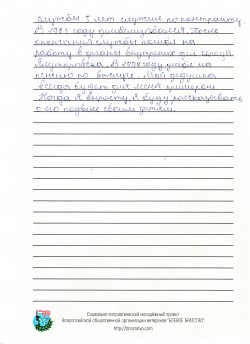 службы 5 лет служил по контракту.
В 1983 году демобилизовался. После
окончания службы пошёл на
работу в органы внутренних дел города
В 1998 году ушёл на
пенсию по выслуге. Мой дедушка
всегда будет для меня примером.
Когда я вырасту, я буду рассказывать
о его подвиге своим детям.
Социально-патриотический молодёжный проект
Всероссийской общественной организации ветеранов "БОЕВОЕ БРАТСТВО"